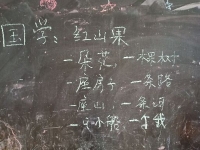 国学: 红山果
一朵花 一棵树
一座房子 一条路
一座山 一条河
一只小船 一个我